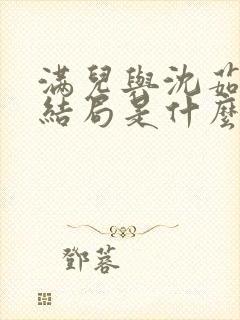 滿兒與沈茹
結局是什麼
鄧蓉